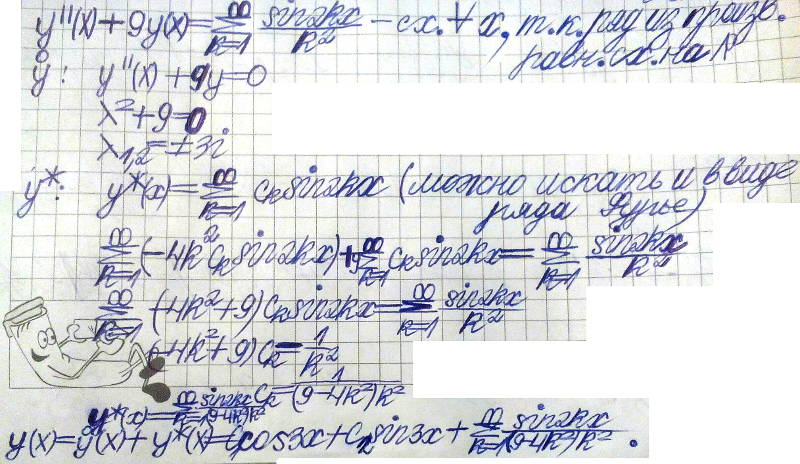 y''(x) + 9y(x) = ∑_{k=1}^{∞} sin2kx / k² - сх. ∀ x, т.к. ряд из произв.
равн. сх. на R
ẙ: y''(x) + 9y = 0
λ² + 9 = 0
λ_{1,2} = ±3i
y*: y*(x) = ∑_{k=1}^{∞} c_k sin2kx (можно искать и в виде
ряда Фурье)
∑_{k=1}^{∞} (-4k² c_k sin2kx) + 9∑_{k=1}^{∞} c_k sin2kx = ∑_{k=1}^{∞} sin2kx / k²
∑_{k=1}^{∞} (-4k² + 9) c_k sin2kx = ∑_{k=1}^{∞} sin2kx / k²
(-4k² + 9) c_k = 1 / k²
c_k = 1 / (9-4k²)k²
y*(x) = ∑_{k=1}^{∞} sin2kx / (9-4k²)k²
y(x) = ẙ(x) + y*(x) = C₁cos3x + C₂sin3x + ∑_{k=1}^{∞} sin2kx / (9-4k²)k² .